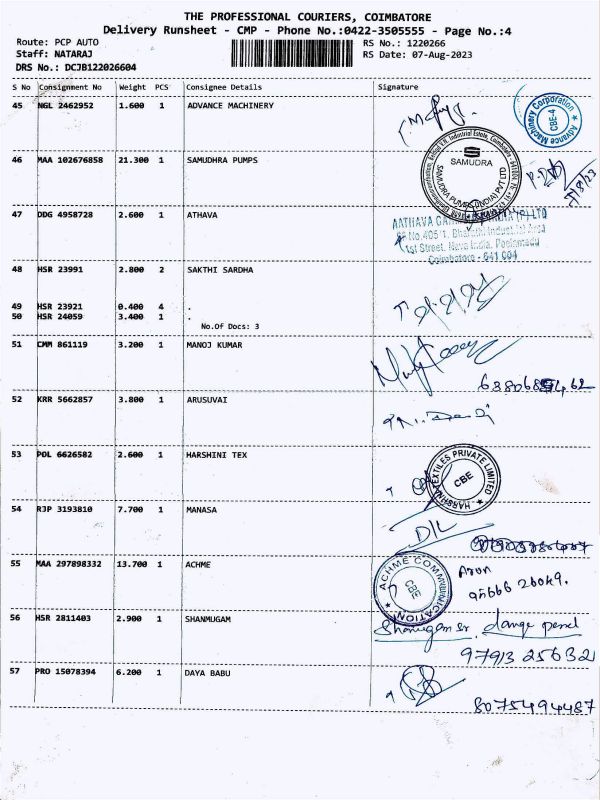 THE PROFESSIONAL COURIERS, COIMBATORE
Delivery Runsheet - CMP - Phone No.:0422-3505555 - Page No.:4
Route: PCP AUTO RS No.: 1220266
Staff: NATARAJ RS Date: 07-Aug-2023
DRS No.: DCJB122026604
S No Consignment No Weight PCS Consignee Details Signature
45 NGL 2462952 1.600 1 ADVANCE MACHINERY
Advance Machinery Corporation CBE-4
46 MAA 102676858 21.300 1 SAMUDHRA PUMPS
SAMUDRA
SAMUDRA PUMPS (INDIA) PVT LTD
47 DDG 4958728 2.600 1 ATHAVA
1st Street, Nava India, Peelamedu
Coimbatore - 641 004
48 HSR 23991 2.800 2 SAKTHI SARDHA
49 HSR 23921 0.400 4 .
50 HSR 24059 3.400 1 .
No.Of Docs: 3
51 CMM 861119 3.200 1 MANOJ KUMAR
52 KRR 5662857 3.800 1 ARUSUVAI
53 POL 6626582 2.600 1 HARSHINI TEX
HARSHNI TEXTILES PRIVATE LIMITED CBE
54 RJP 3193810 7.700 1 MANASA
D/L
55 MAA 297898332 13.700 1 ACHME
ACHME COMMUNICATION CBE
Arun
56 HSR 2811403 2.900 1 SHANMUGAM
Shanugam sr.
97913 25632
57 PRO 15078394 6.200 1 DAYA BABU
8075494487